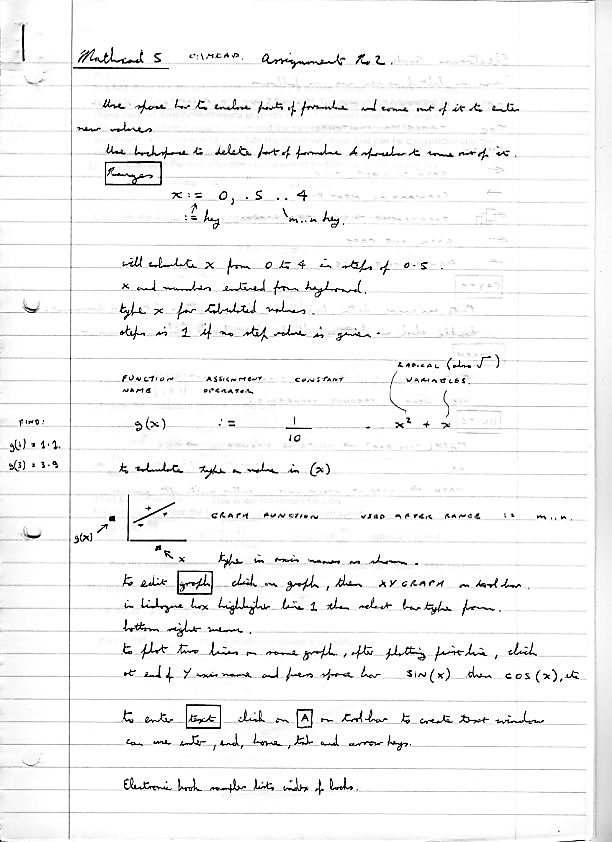 Mathcad 5 C:\MCAD. Assignment No 2.
Use space bar to enclose parts of formulae and come out of it to enter
new values.
Use backspace to delete part of formulae & spacebar to come out of it.
Ranges
x := 0, .5 .. 4
:= key m..n key.
will calculate x from 0 to 4 in steps of 0.5.
x and numbers entered from keyboard.
type x for tabulated values.
steps is 1 if no step value is given.
RADICAL (also √ )
FUNCTION ASSIGNMENT CONSTANT VARIABLES.
NAME OPERATOR
FIND:
g(x) := 1/10 . x² + x
g(1) = 1.1.
g(3) = 3.9
to calculate type a value in (x)
GRAPH FUNCTION USED AFTER RANGE := m..n.
g(x)
x type in axis names as shown.
to edit graph click on graph, then XYGRAPH on toolbar.
in dialogue box highlight line 1 then select bar type from.
bottom right menu.
to plot two lines on same graph, after plotting first line, click
at end of Y axis name and press space bar SIN(x) then COS(x), etc
to enter text click on A on toolbar to create text window
can use enter, end, home, tab and arrow keys.
Electronic book sampler lists index of books.